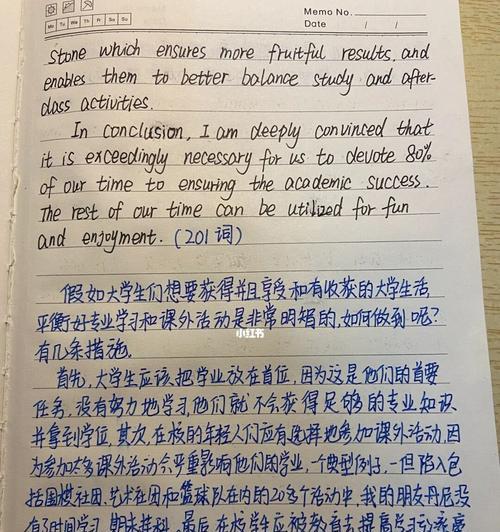 Memo No.
Mo Tu We Th Fr Sa Su
Date / /
stone which ensures more fruitful results, and
enables them to better balance study and after-
class activities.
In conclusion, I am deeply convinced that
it is exceedingly necessary for us to devote 80%
of our time to ensuring the academic success.
The rest of our time can be utilized for fun
and enjoyment. (201词)
假如大学生们想要获得并且享受和有收获的大学生活
平衡好专业学习和课外活动是非常明短的,如何做到呢?
小红书
有几条措施。
首先,大学生应该把学业放在首位,因为这是他们的首要
任务,没有努力地学习,他们就不会获得足够的专业知识
并拿到学位.其次,在校的年轻人们应有选择地参加课外活动,因
为参加太多课外活动会严重影响他们的学业,一个典型例子,一但陷入包
括围棋社团、艺术社团和篮球队在内的20多个活动中,我的朋友丹尼没
有了时间学习,期末挂科.最后,在校学生应被教育去提高学习效率